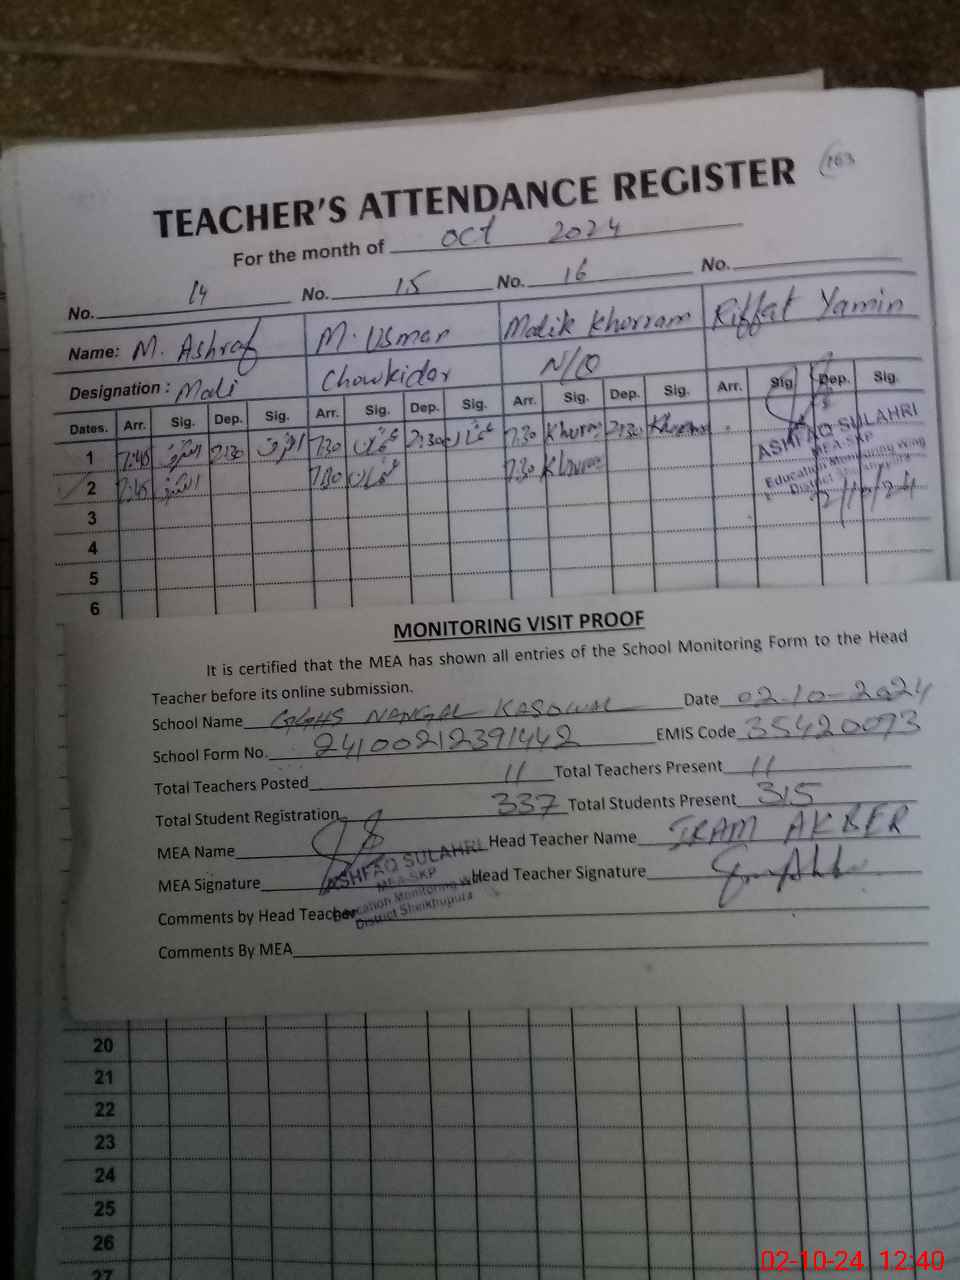 163
TEACHER'S ATTENDANCE REGISTER
For the month of Oct 2024
No. 14 No. 15 No. 16 No.
Name: M. Ashraf M. Usman Malik Khurram Riffat Yamin
Designation: Mali Chowkidar N/Q
Dates. Arr. Sig. Dep. Sig. Arr. Sig. Dep. Sig. Arr. Sig. Dep. Sig. Arr. Sig. Dep. Sig.
1 7:45 2:30 7:30 عثمان 2:30 عثمان 7:30 Khurram 2:30 Khurram
2 7:45 7:30 عثمان 7:30 Khurram
ASHFAQ SULAHRI
MEA-SKP
Education Monitoring Wing
District
3
4
5
6
MONITORING VISIT PROOF
It is certified that the MEA has shown all entries of the School Monitoring Form to the Head
Teacher before its online submission.
School Name GGHS NANGAL KASOWAL Date 02-10-2024
School Form No. 24100212391442 EMIS Code 35420073
Total Teachers Posted 11 Total Teachers Present 11
Total Student Registration 337 Total Students Present 315
MEA Name Head Teacher Name IRAM AKBER
MEA Signature Head Teacher Signature
ASHFAQ SULAHRI
MEA-SKP
Education Monitoring W
District Sheikhupura
Comments by Head Teacher
Comments By MEA
20
21
22
23
24
25
26
27
02-10-24 12:40